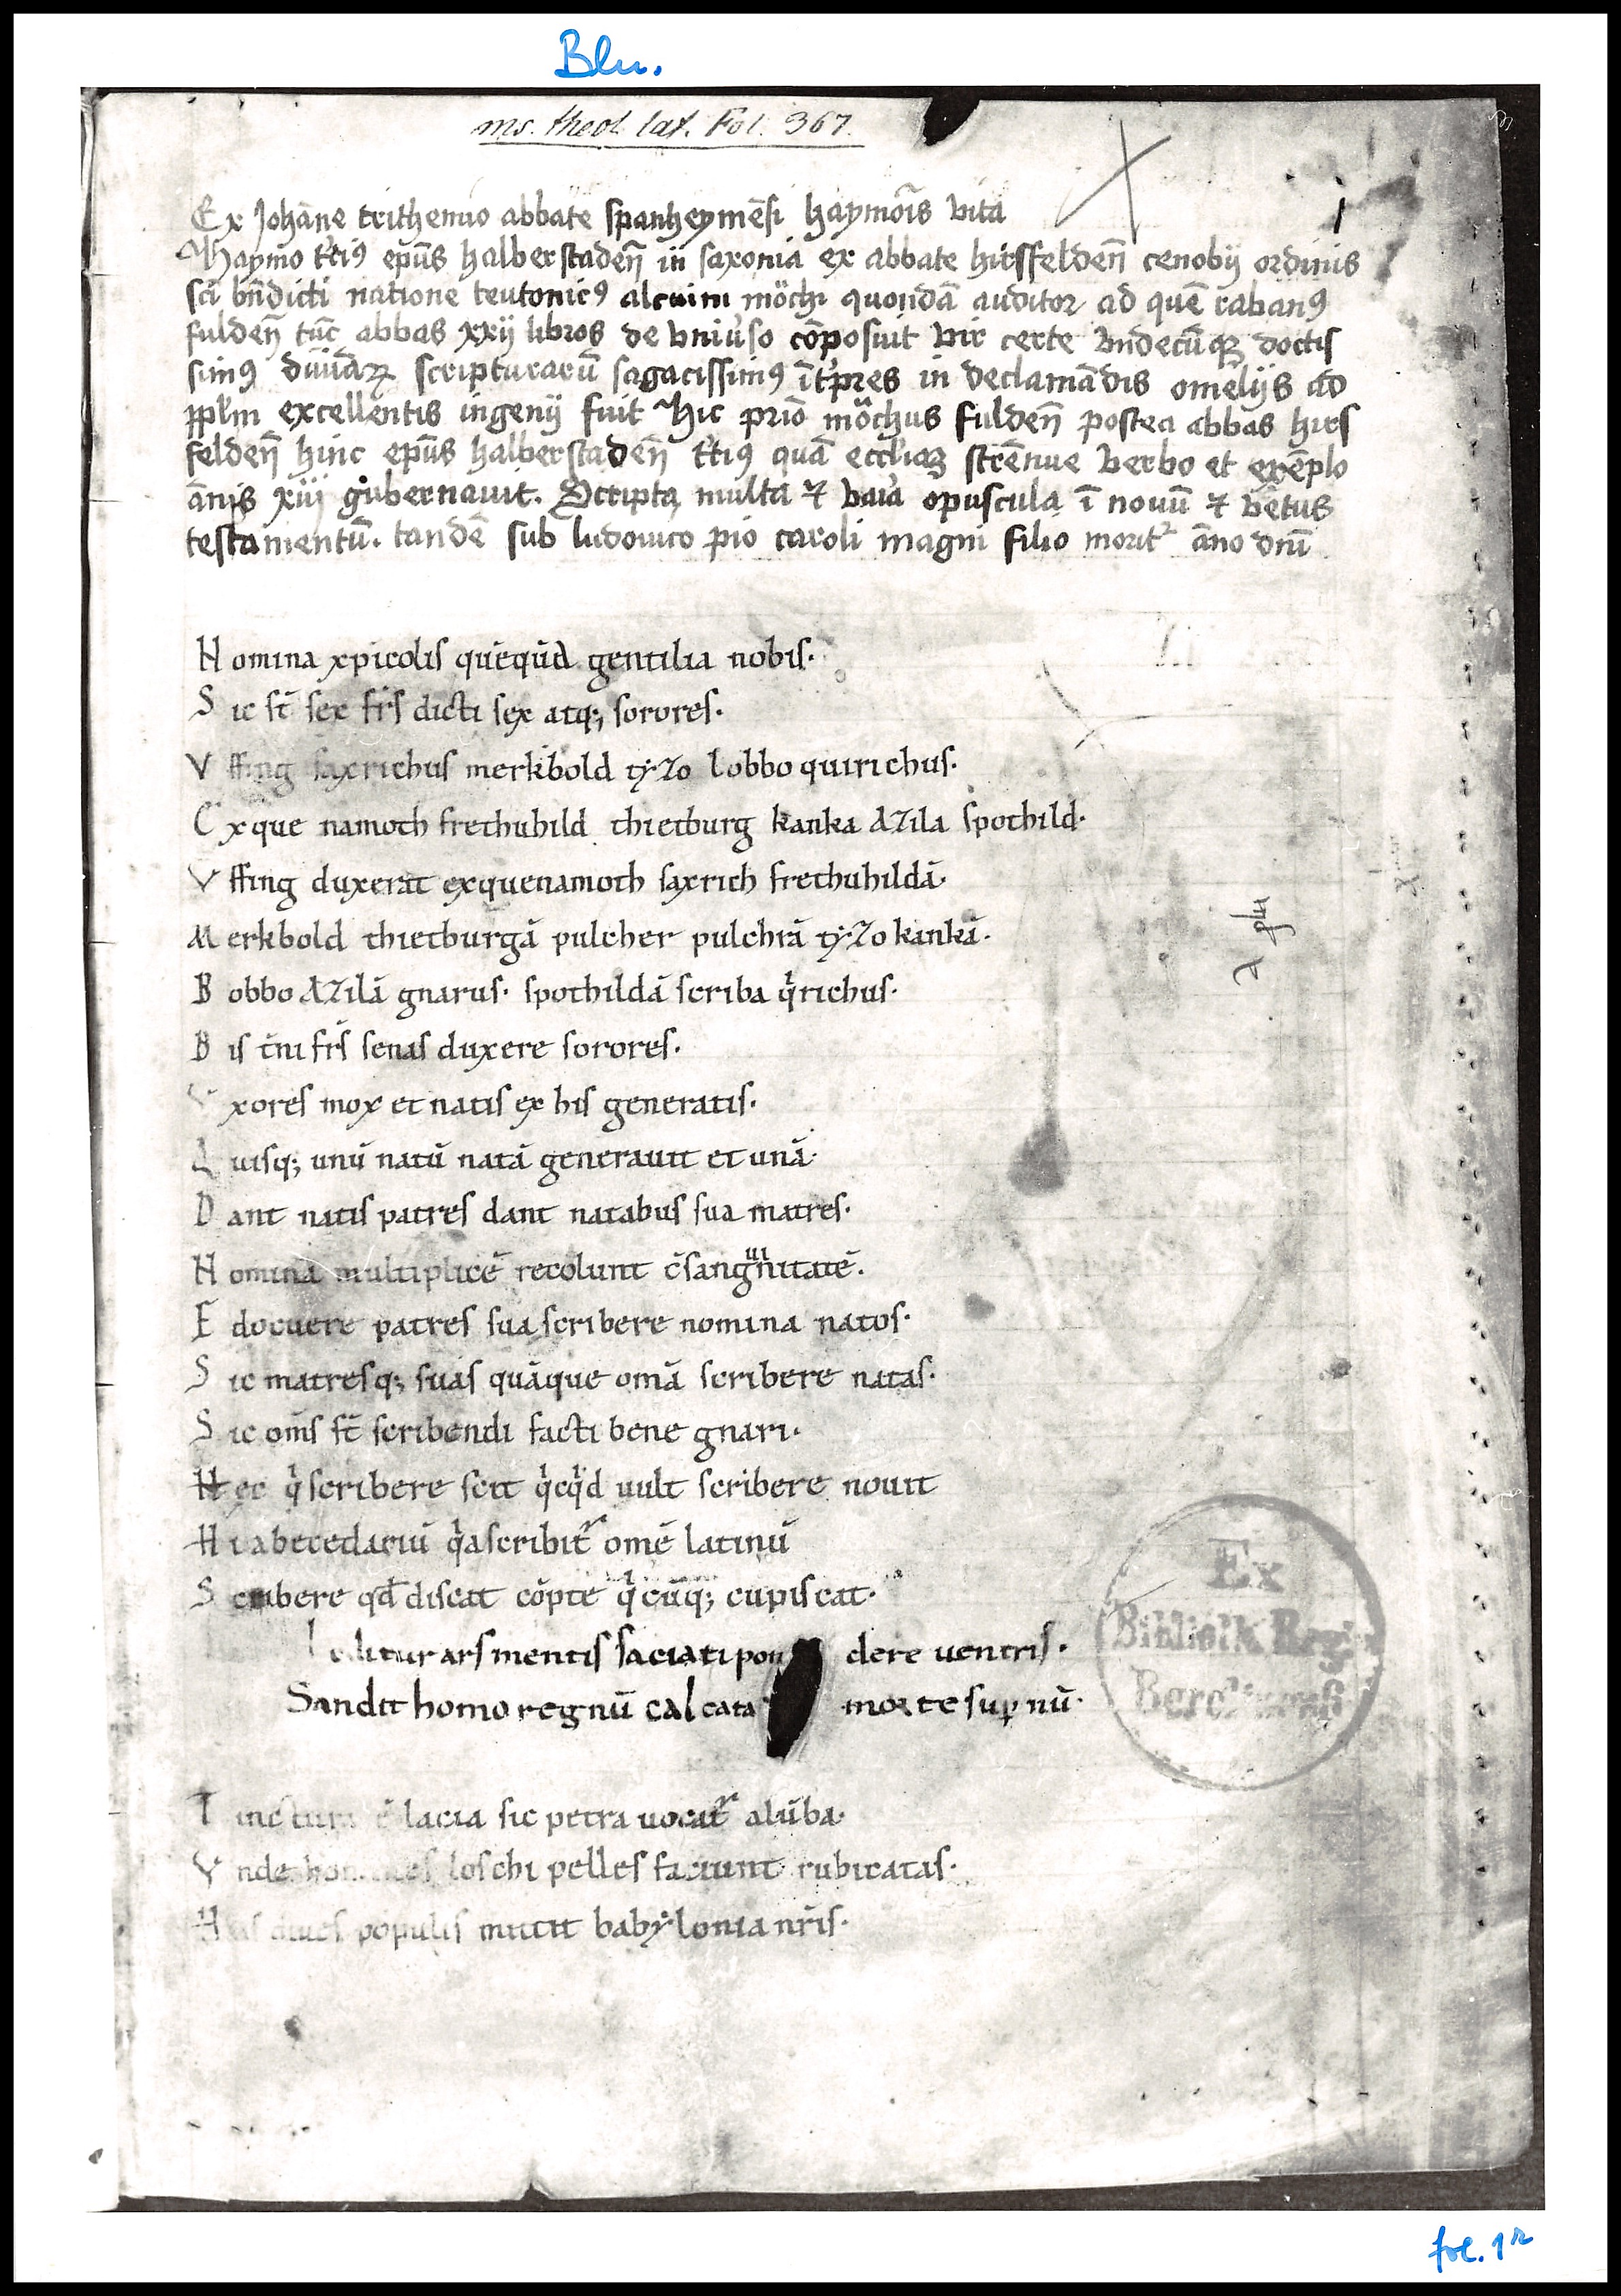 Blu.
ms. theol. lat. Fol. 367.
Ex Johāne trithemio abbate spanheymēsi haymōis vita
Haymo tʼtiꝰ epūs halberstadeñ in saxonia ex abbate hirsfeldeñ cenobij ordinis
sci bn̄dicti natione teutonicꝰ alcuini mōchi quondā auditor ad quē rabanꝰ
fuldeñ tūc abbas xxij libros de vniuʼso cōposuit vir certe vndecūqꝫ doctis
simꝰ diuinaꝝ scripturarū sagacissimꝰ ītʼpres in declamādis omelijs ad
pplʼm excellentis ingenij fuit Hic primo mōchus fuldeñ postea abbas hirs
feldeñ hinc epūs halberstadeñ tʼtiꝰ quā eccliaꝫ strēnue verbo et exēplo
ānis xiij gubernauit. Scripta multa ⁊ vaia opuscula ī nouū ⁊ vetus
testamentū. tandē sub ludouico pio caroli magni filio moritᷣ āno dnī
Nomina xp̄icolis queq̄ud gentilia nobis·
Sic st̄ sex fr̄s dicti sex atq; sorores·
Vffing saxrichus merkbold tẏzo lobbo quirichus·
Exque namoth frethuhild thietburg kanka Azila spothild·
Vffing duxerat exquenamoth saxrich frethuhildā·
Merkbold thietburgā pulcher pulchrā tẏzo kankā·
Bobbo Azilā gnarus· spothildā scriba qͥrichus·
Bis t̄ni fr̄s senas duxere sorores·
Vxores mox et natis ex his generatis·
Quisq; unū natū natā generauit et unā·
Dant natis patres dant natabus sua matres·
Nomina multiplicē recolunt c̄sanguinitatē·
Edocuere patres sua scribere nomina natos·
Sic matresq; suas quāque omā scribere natas·
Sic om̄s st̄ scribendi facti bene gnari·
Hec qͥ scribere scit qͥcqͥd uult scribere nouit
Hi abecedariū qͥa scribitᷣ omē latinū
Scribere qd̄ discat cōpte qͥcūq; cupiscat·
Leditur ars mentis saciati pondere uentris·
Scandit homo regnū calcata morte sup̱nū·
Tinctura ē lacia sic petra uocatᷣ alūba·
Vnde homines loschi pelles faciunt rubicatas·
Has diues populis mittit babẏlonia nr̄is·
Ex
Biblioth. Regia
Berolinensi
fol. 1r